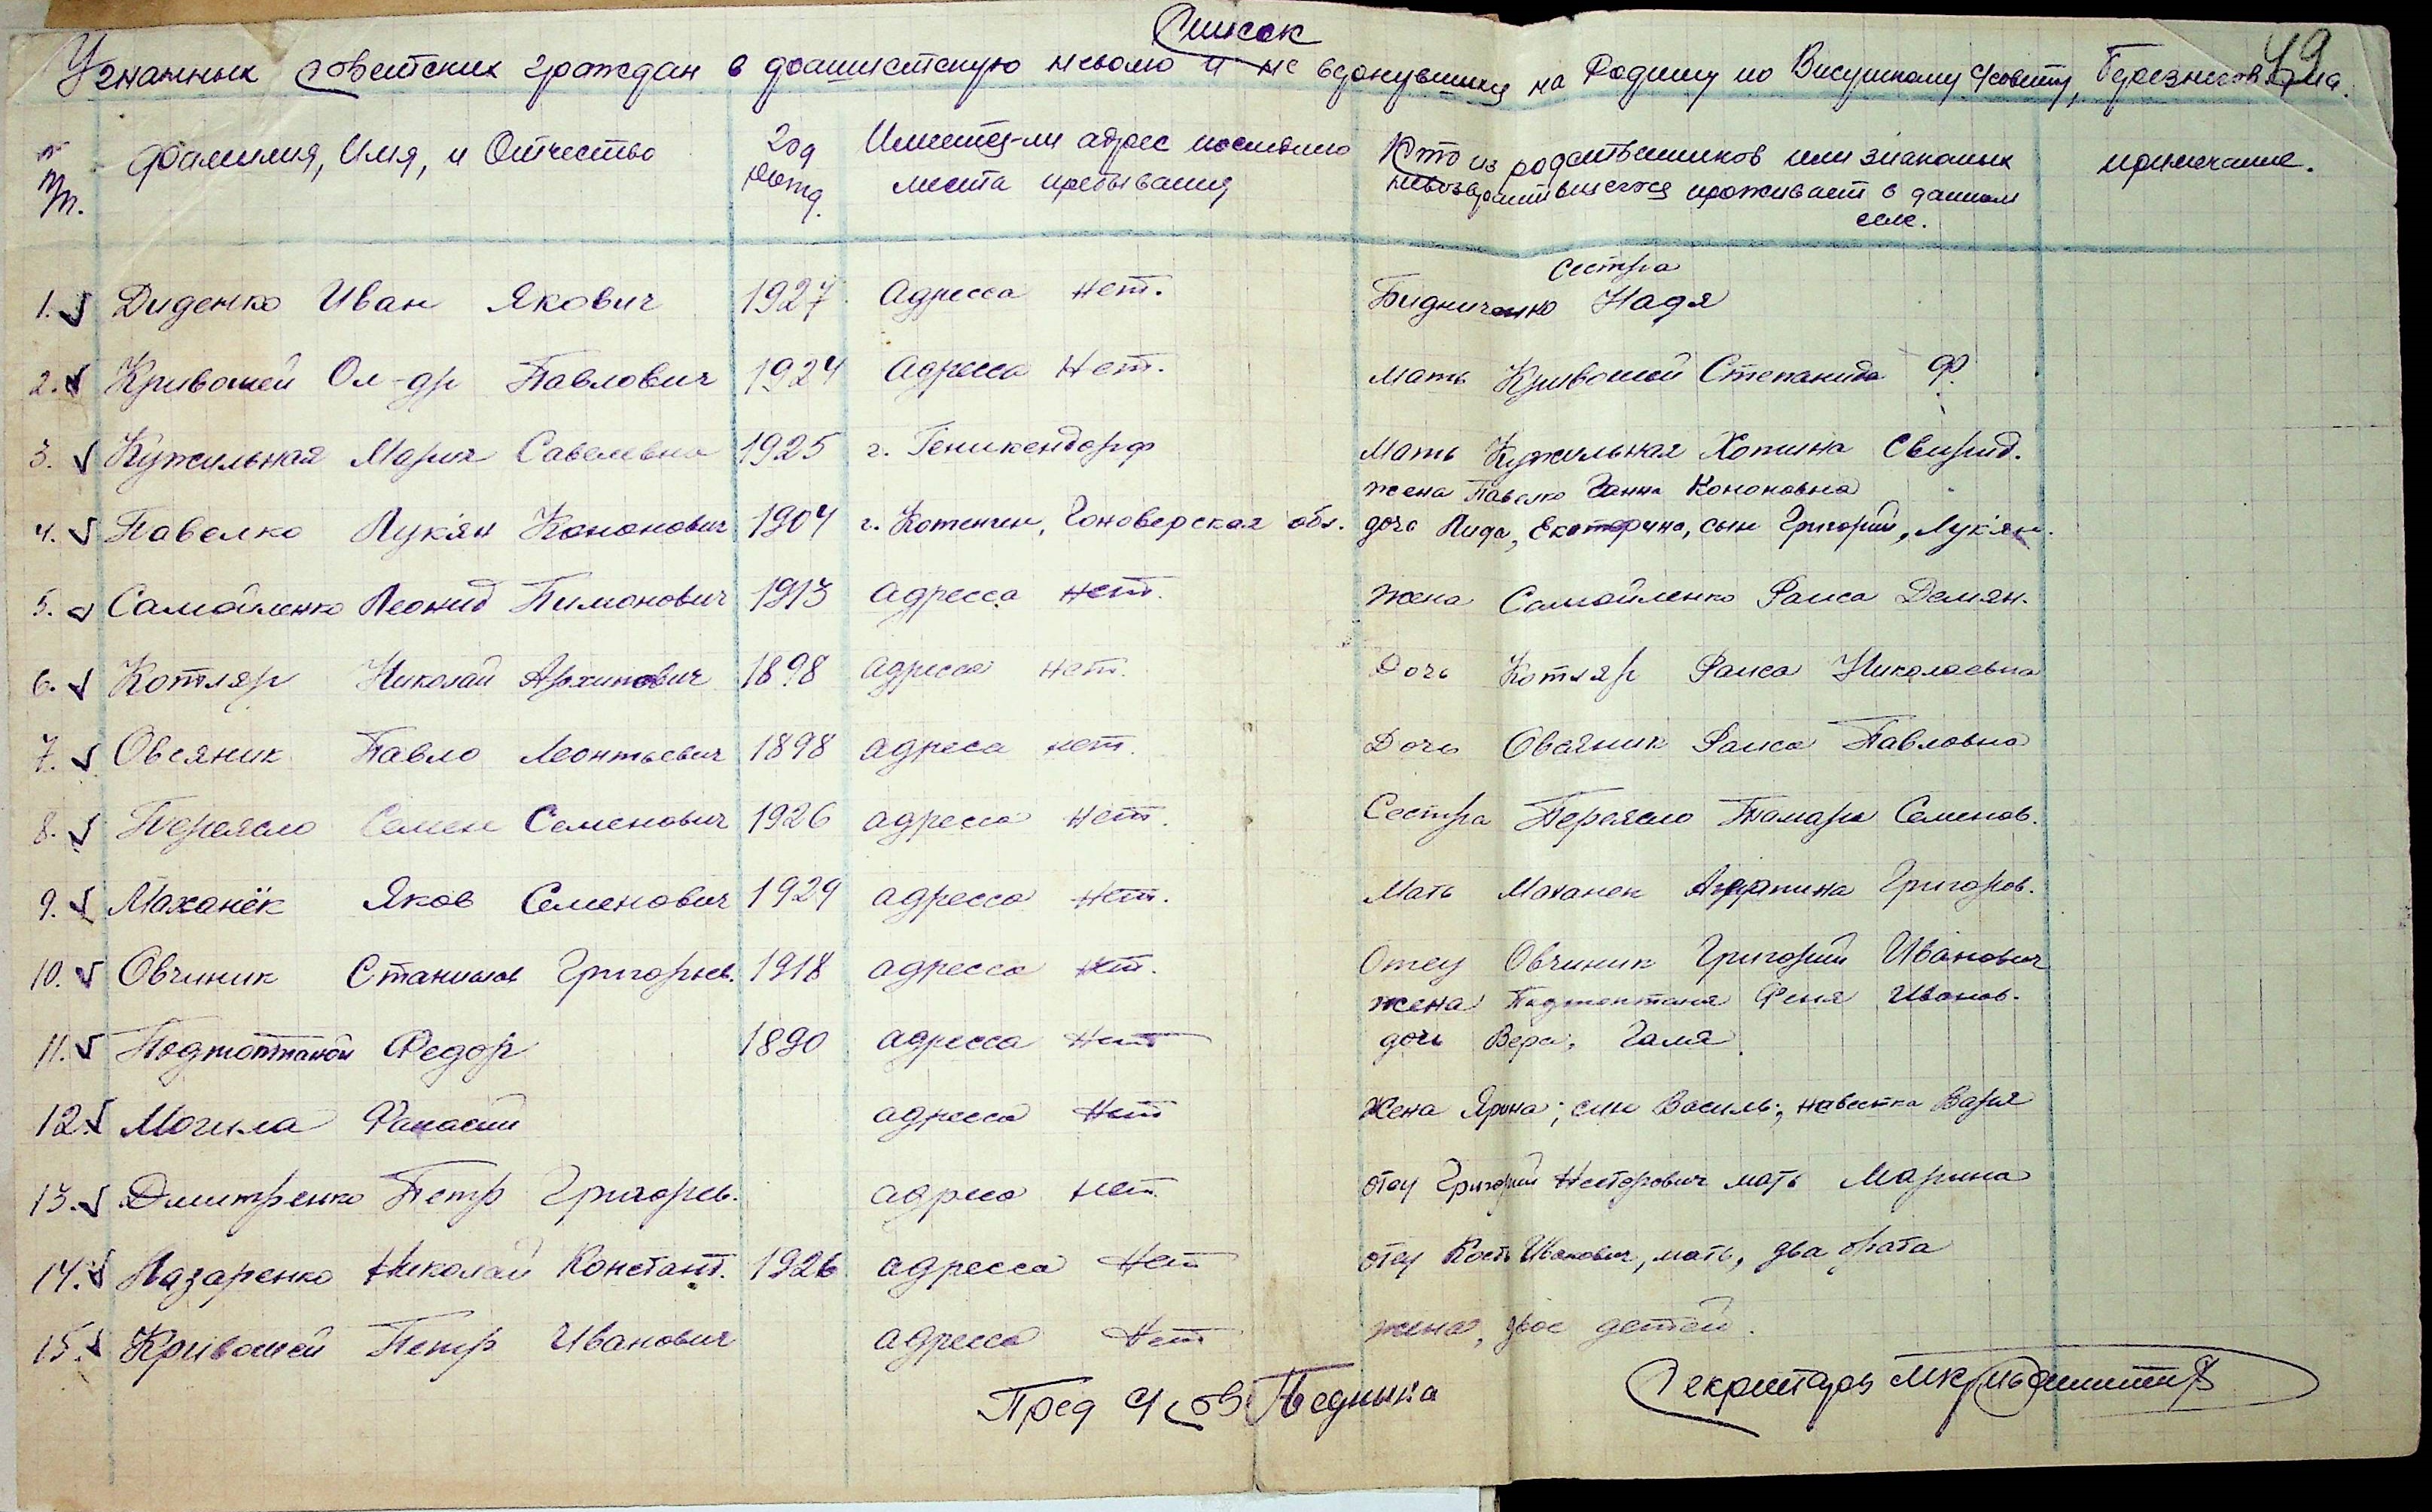 Список
49
Угнанных советских граждан в фашистскую неволю и не вернувшихся на Родину по Висунскому с/совету, Березнеговат. р-на.
№ п/п.
Фамилия, Имя, и Отчество
Год рожд.
Имеется-ли адрес последнего места пребывания
Кто из родственников или знакомых невозвратившегося проживает в данном селе.
примечание.
1. Диденко Иван Якович 1927 Адресса нет. Сестра Бидниченко Надя
2. Кривошей Ол-др Павлович 1924 Адресса Нет. Мать Кривошей Степанида Ф.
3. Кужильная Мария Савелевна 1925 г. Геникендорф Мать Кужильная Хотина Свирид.
4. Павелко Лук'ян Кононович 1904 г. Котенген, Гоноверская обл. жена Павелко Ганна Кононовна
дочь Лида, Екатерина, сын Григорий, Лук'ян.
5. Самойленко Леонид Пимонович 1913 адресса нет. жена Самойленко Раиса Демян.
6. Котляр Николай Архипович 1898 адресса нет. Дочь Котляр Раиса Николаевна
7. Овсяник Павло Леонтьевич 1898 адреса нет. Дочь Овсяник Раиса Павловна
8. Переясло Семен Семенович 1926 адресса нет. Сестра Переясло Тамара Семенов.
9. Маханёк Яков Семенович 1929 адресса нет. Мать Маханек Агрипина Григоров.
10. Овчиник Станислов Григорьев. 1918 адресса нет. Отец Овчиник Григорий Иванович
11. Подтоптаной Федор 1890 адресса Нет жена Подтоптаная Феня Иванов.
дочь Вера, Галя.
12. Могила Фанасий адресса Нет Жена Ярина; син Василь; невестка Варя
13. Дмитренко Петр Григорьев. адреса нет. отец Григорий Несторович мать Марина
14. Лазаренко Николай Констант. 1926 адресса Нет отец Кость Иванович, мать, два брата
15. Кривошей Петр Иванович адресса Нет жена, двое детей.
Пред с/сов
Секретарь